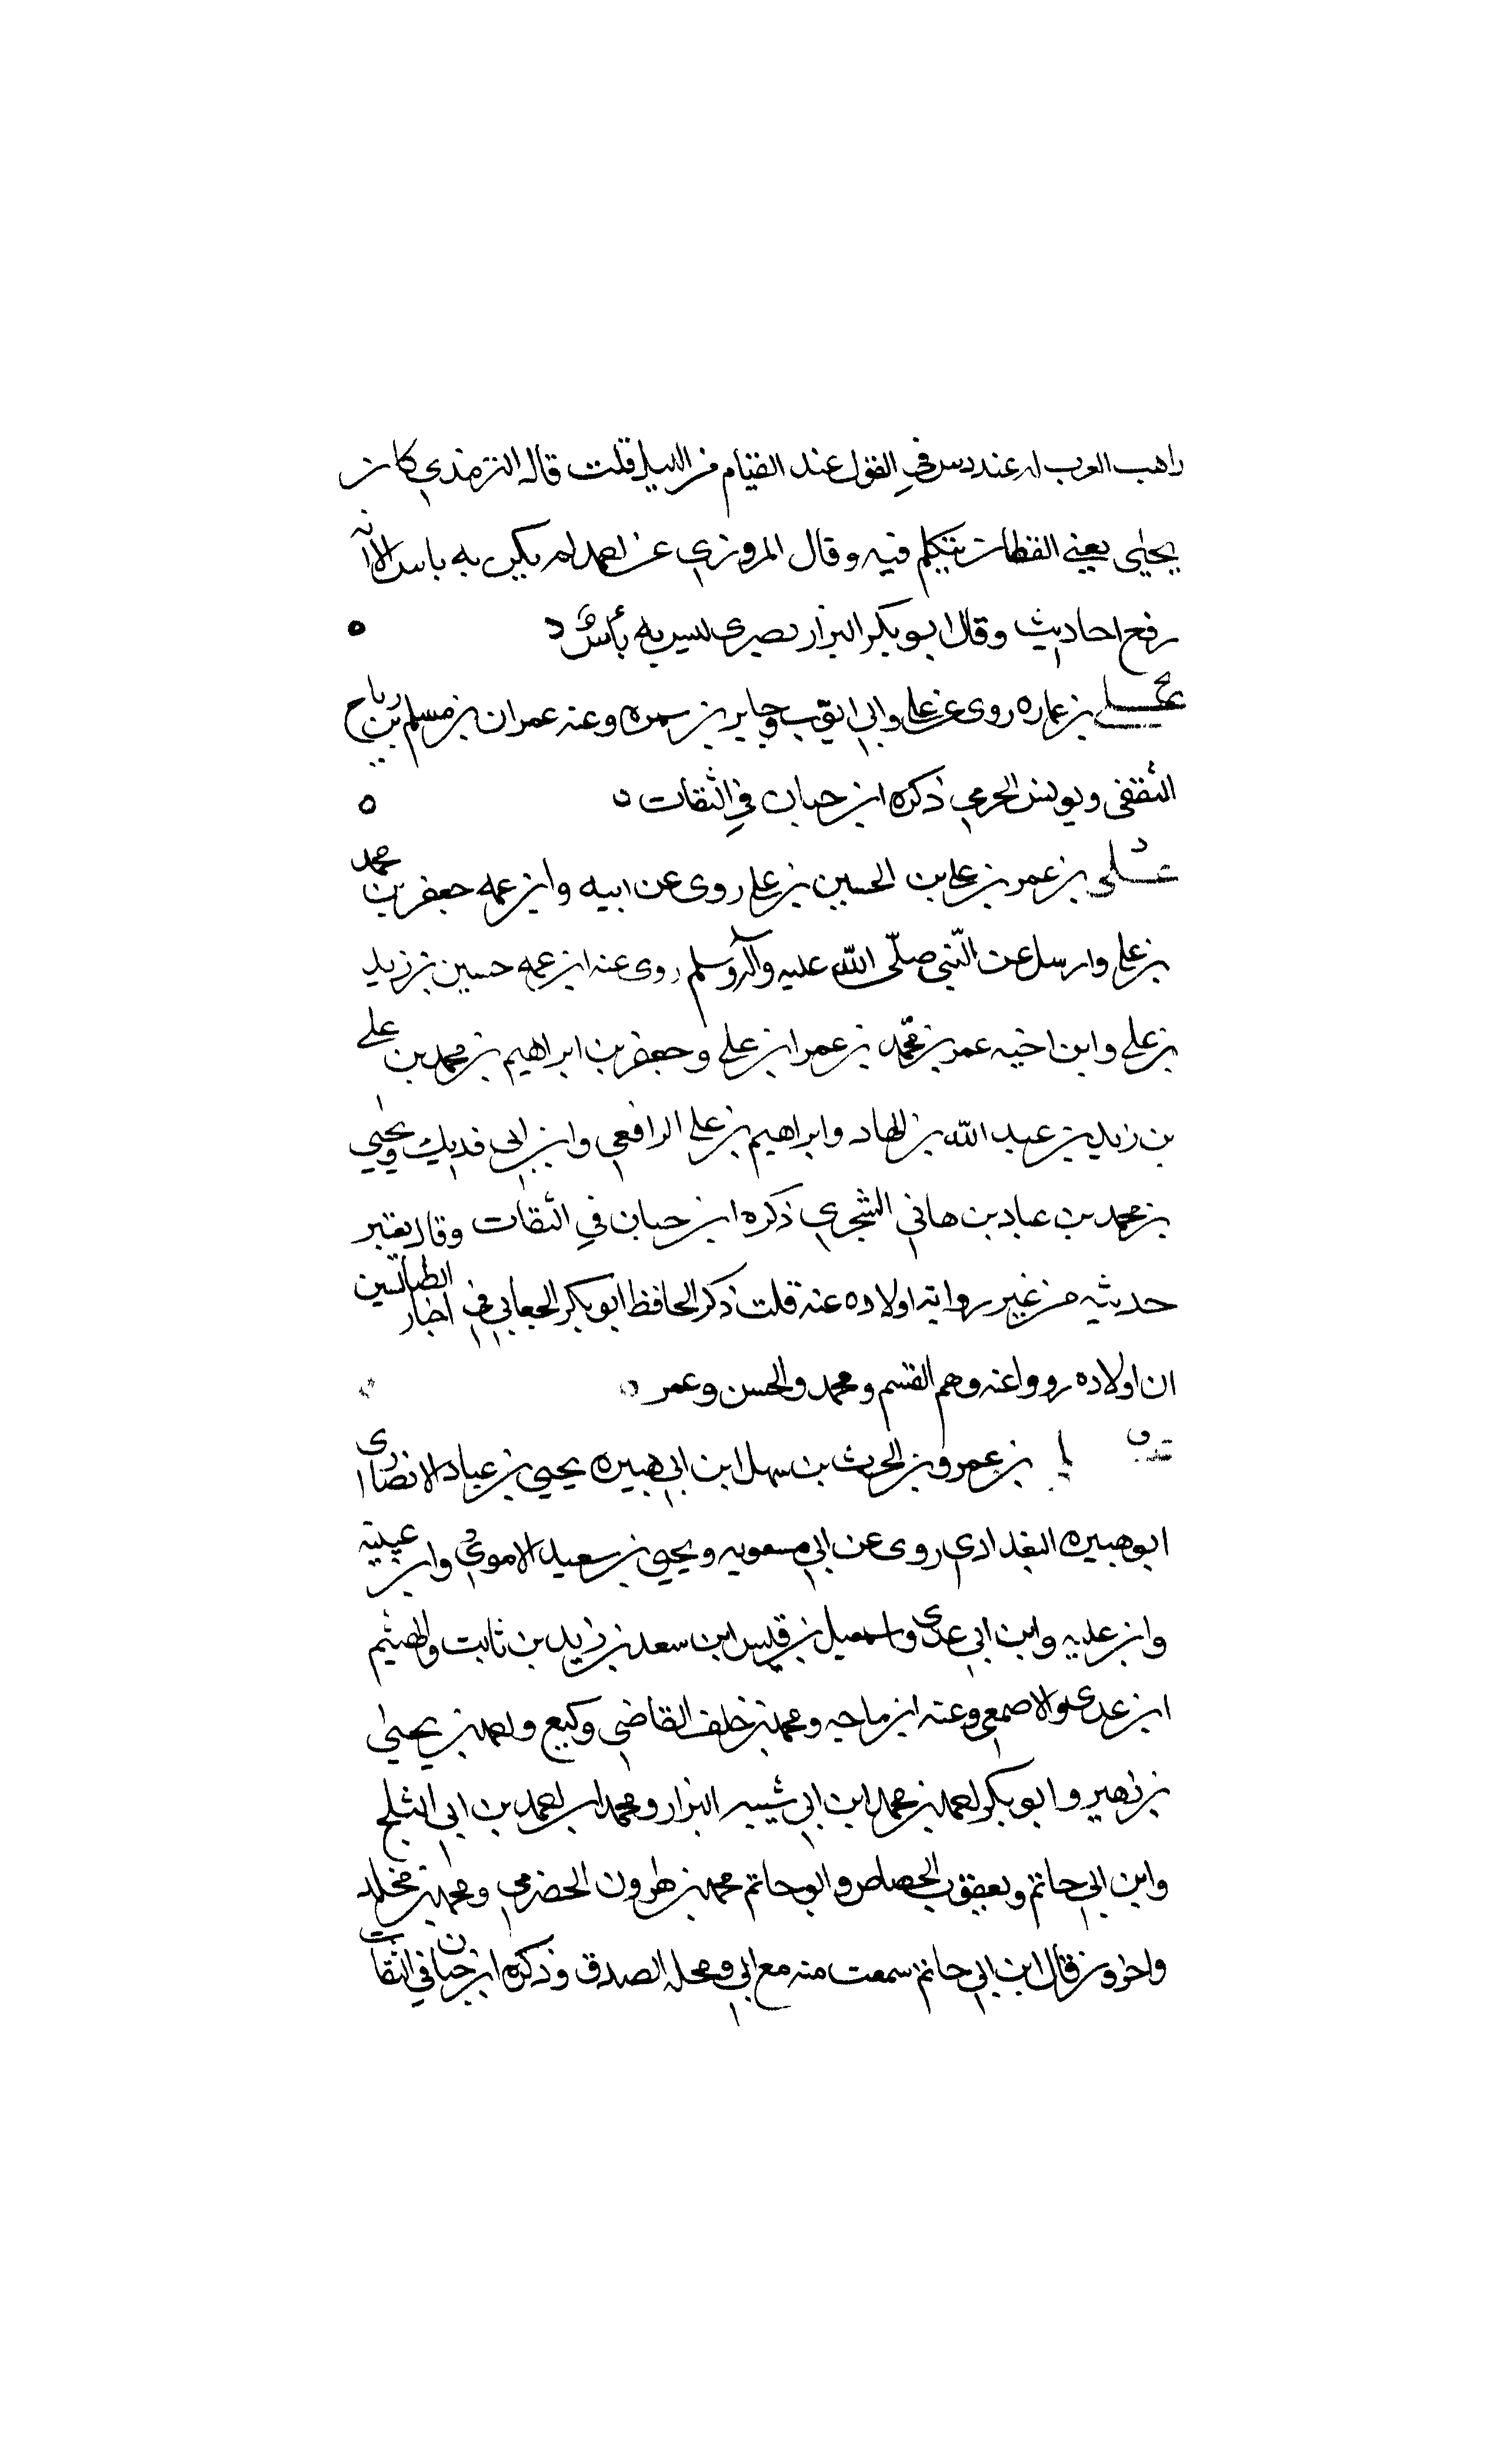 راهب العرب له عندهم في القول عند القيام من الليل قلت قال الترمذي كان
يحيى يعني القطان يتكلم فيه وقال المروزي عن احمد لم يكن به باس الا انه
رفع احاديث وقال ابو بكر البزار بصرى ليس به بأس
علي بن عماره روى عن علي وابي ايوب وجابر بن سمره وعنه عمران بن مسلم بن رباح
الثقفي ويونس الجرمي ذكره ابن حبان في الثقات
علي بن عمر بن علي بن الحسين بن علي روى عن ابيه وابن عمه جعفر بن محمد
بن علي وارسل عن النّبي صلّى اللّه عليه وآله وسلم روى عنه ابن عمه حسين بن زيد
بن علي وابن اخيه عمر بن محمّد بن عمر ابن علي وجعفر بن ابراهيم بن محمد بن علي
بن زيد بن عبد الله بن الهاد وابراهيم بن علي الرافعي وابن ابي فديك ويحيى
بن محمد بن عباد بن هاني الشجري ذكره ابن حبان في الثقات وقال يعتبر
حديثه من غير رواية اولاده عنه قلت ذكر الحافظ ابو بكر الجعابي في اخبار الطالبيين
ان اولاده رووا عنه وهم القسم ومحمد والحسن وعمر
بن عمرو بن الحرث بن سهل ابن ابي هبيره يحيى بن عباد الانصارى
ابو هبيره البغدادي روى عن ابي معويه ويحيى بن سعيد الاموي وابن عيينة
وابن عليه وابن ابي عدى واسمعيل بن قيس ابن سعد بن زيد بن ثابت والهيثم
ابن عدى والاصمعي وعنه ابن ماجه ومحمد بن خلف القاضي وكيع واحمد بن يحيى
بن زهير وابو بكر احمد بن محمد ابن ابي شيبه البزار ومحمد ابن احمد بن ابي الثلج
وابن ابي حاتم ويعقوب الجصاص وابو حاتم محمد بن هرون الحضرمي ومحمد بن مخلد
واخرون قال ابن ابي حاتم سمعت منه مع ابي ومحله الصدق وذكره ابن حبان في الثقات